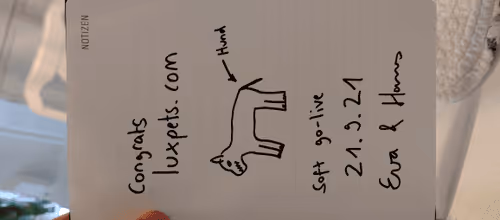 NOTIZEN
Congrats
luxpets.com
Hund
Soft go-live
21.9.21
Eva & Hans